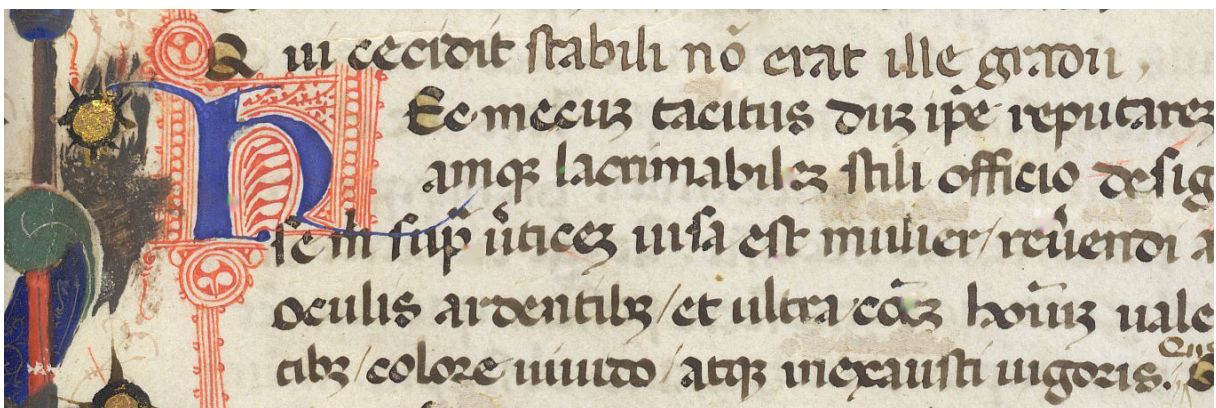 Qui cecidit stabili nõ erat ille gradu,
hEc mecuꝫ tacitus duꝫ ip̃e reputareꝫ
amqꝫ lacrimabileꝫ stili officio desig
sem̃ sup̃ ũticeꝫ uisa est mulier / reũendi a
oculis ardentibꝫ / et ultra cõeꝫ hoĩuꝫ uale
tibꝫ / colore uiuido / atqꝫ inexausti uigoris.